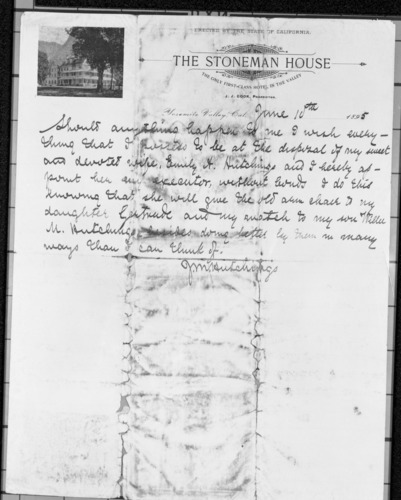 ERECTED BY THE STATE OF CALIFORNIA.
THE STONEMAN HOUSE
THE ONLY FIRST-CLASS HOTEL IN THE VALLEY
J. J. COOK, PROPRIETOR.
Yosemite Valley, Cal. June 10th 1895
Should anything happen to me I wish every-
thing that I possess to be at the disposal of my sweet
and devoted wife, Emily A. Hutchings and I hereby ap-
point her my executor, without bonds. I do this
knowing that she will give the old arm chair to my
daughter Gertrude and my watch to my son Willie
M. Hutchings, besides doing better by them in many
ways than I can think of.
J. M. Hutchings